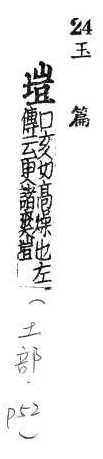 24
玉篇
塏口亥切高燥也左
傳云更諸爽塏
(土部.
p52)